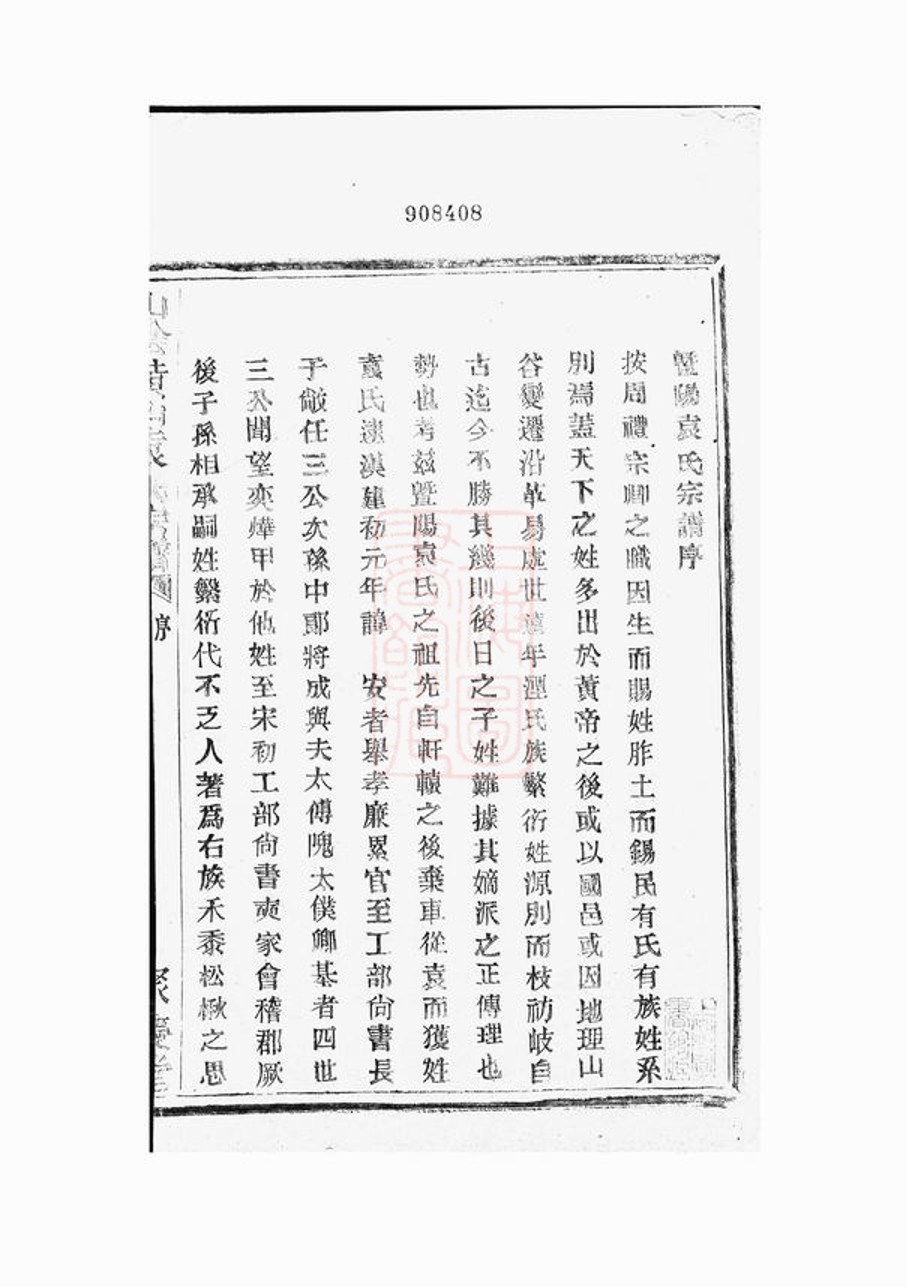 908408
暨陽袁氏宗譜序
按周禮宗卿之職因生而賜姓胙土而錫民有氏有族姓系
別焉蓋天下之姓多出於黃帝之後或以國邑或因地理山
谷變遷沿革易處世遠年湮氏族繁衍姓源別而枝祊岐自
古迄今不勝其幾則後日之子姓難據其嫡派之正傳理也
勢也考茲暨陽袁氏之祖先自軒轅之後棄車從袁而獲姓
袁氏逮漢建初元年諱 安者舉孝廉累官至工部尚書長
子敞任三公次孫中郎將成與夫太傅隗太僕卿基者四世
三公聞望奕燁甲於他姓至宋初工部尚書奭家會稽郡厥
後子孫相承嗣姓繁衍代不乏人著爲右族禾黍松楸之思
序
上海圖書館藏